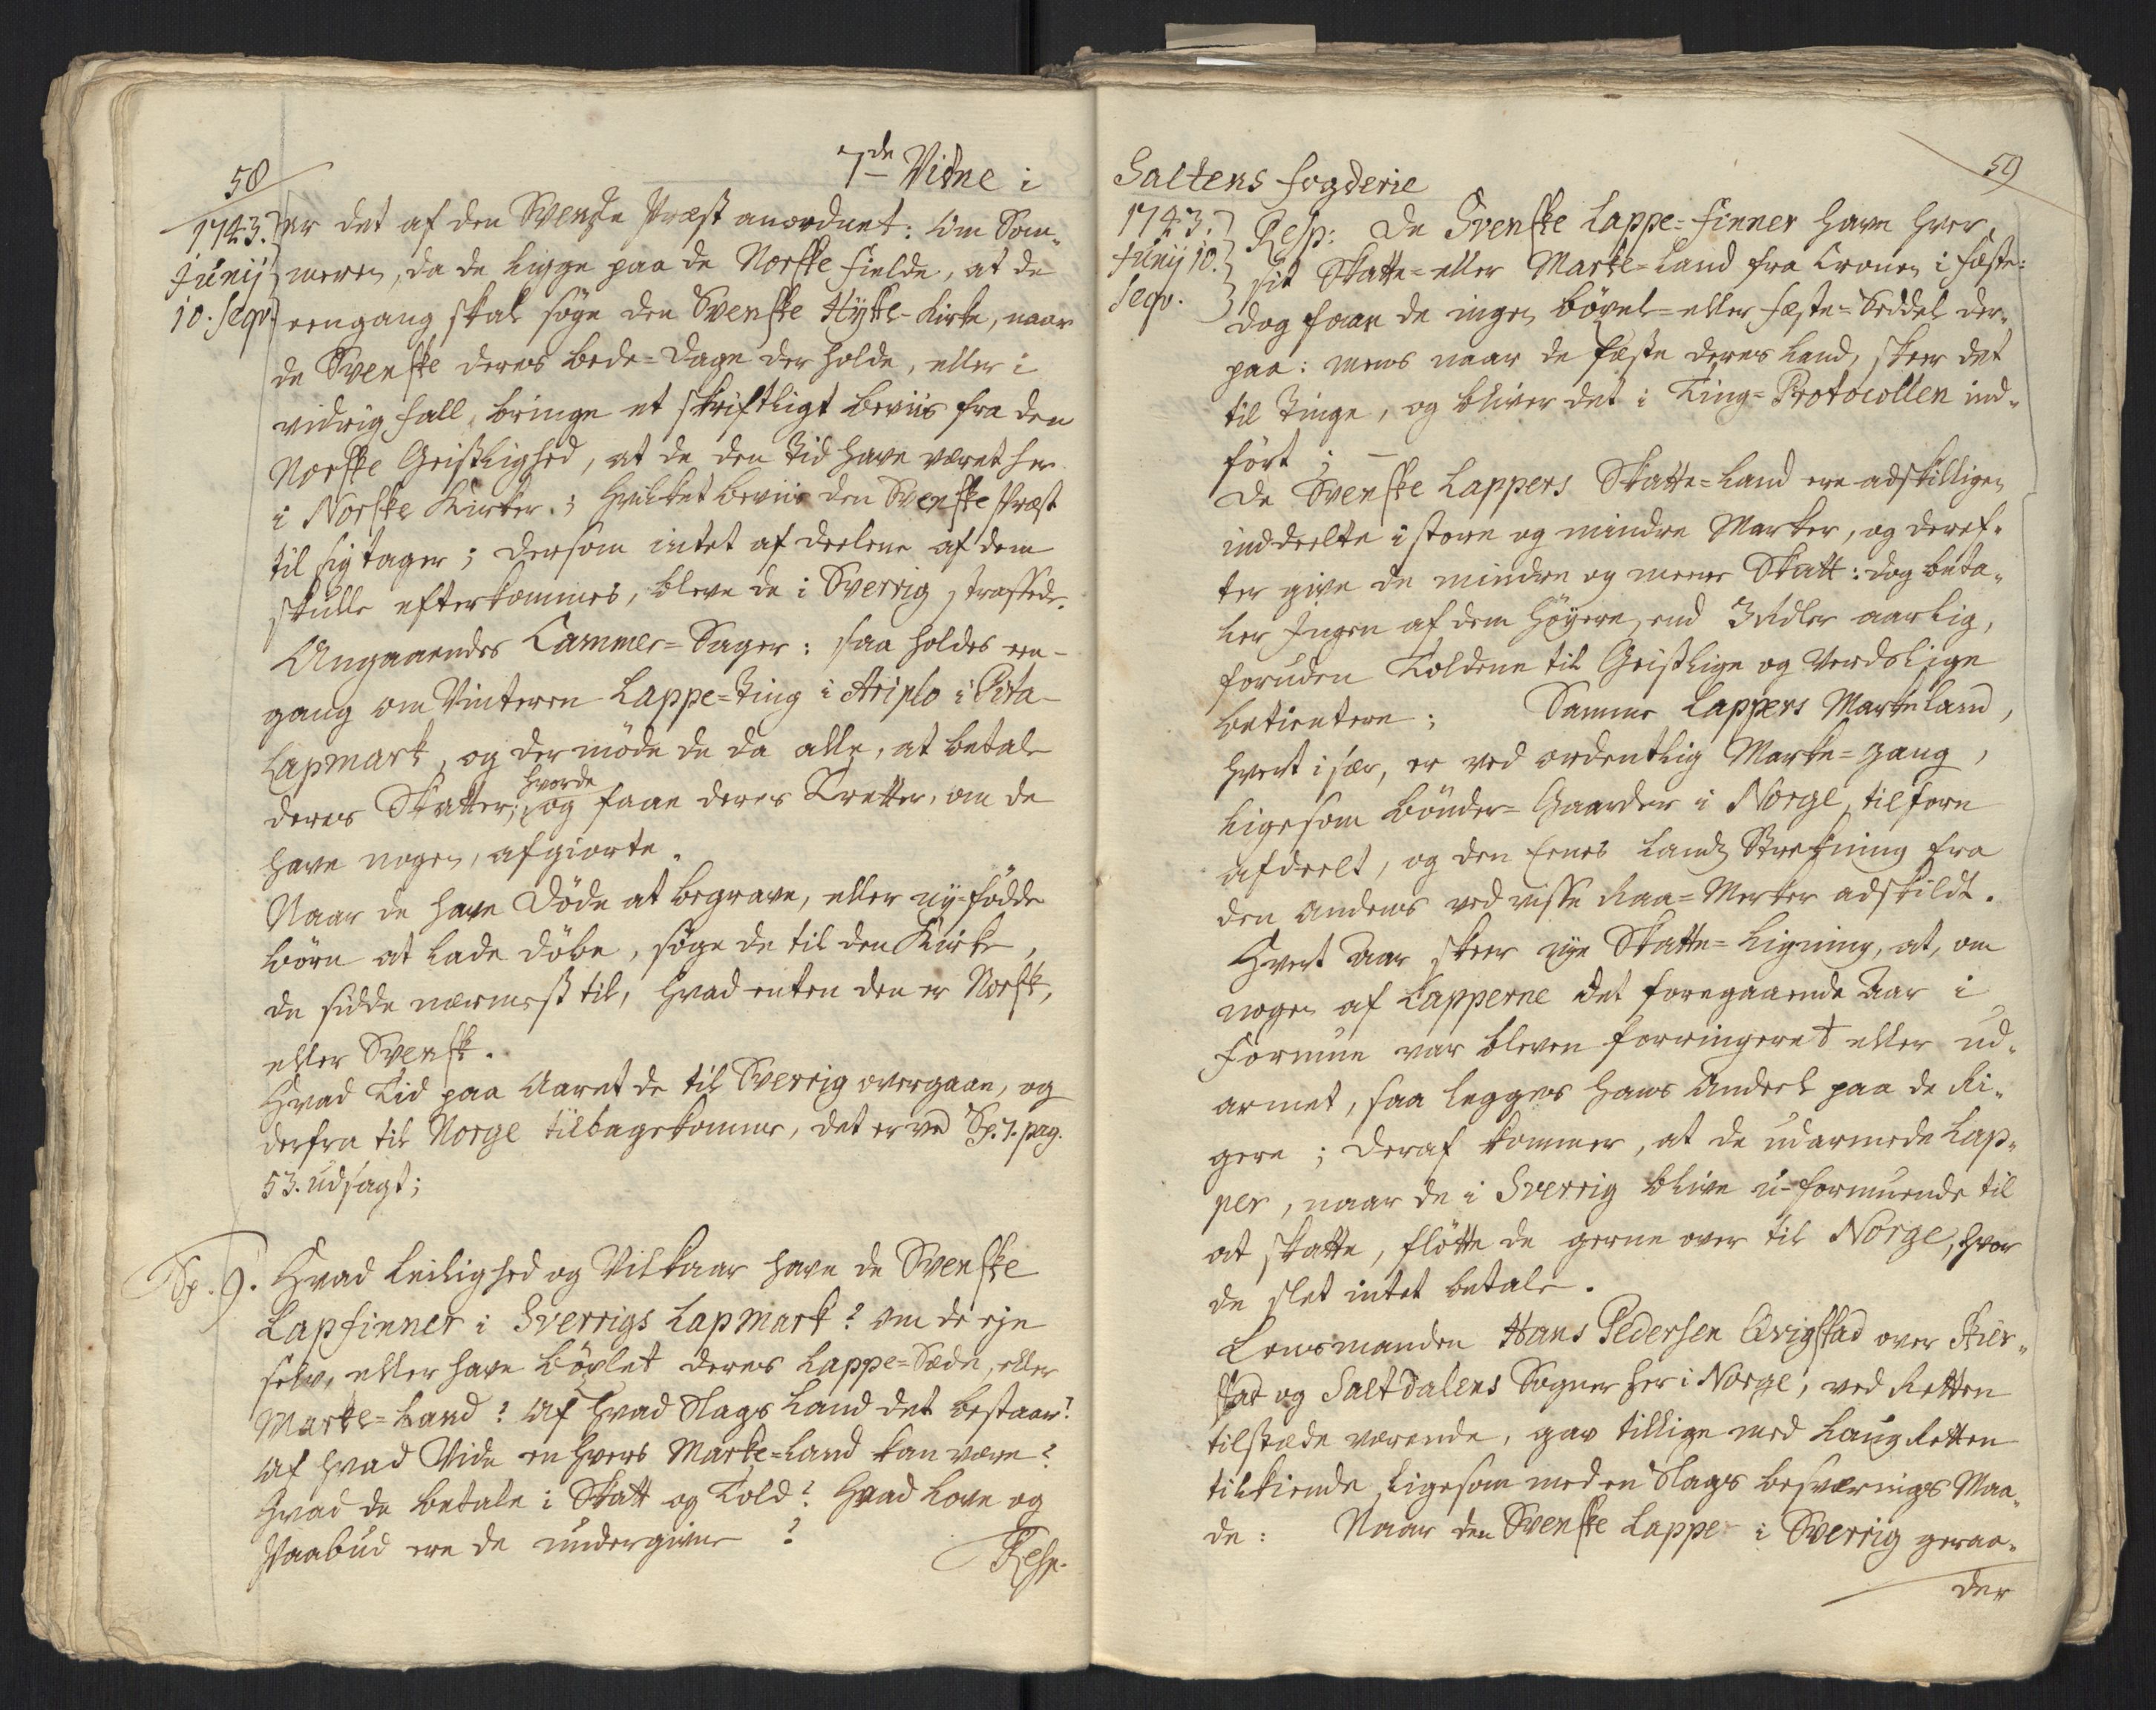 58
7de Vidne i
1743.
Junij
10. seqv.
er det af den Svenske Præst anordnet: Om Som-
meren, da de ligge paa de Norske Fielde, at de
eengang skal søge den Svenske Hytte-Kirke, naar
de Svenske deres bede-Dage der holde, eller i
vidrig fall, bringe et skriftligt beviis fra den
Norske Geistlighed, at de den tid have været her
i Norske Kirker.; hvilket beviis den Svenske Præst
til sig tager; dersom intet af deelene af dem
skulle efterkommes, bleve de i Sverrig straffede.
Angaaendes Cammer-Sager: saa holdes een-
gang om Vinteren Lappe-Ting i Ariplo i Pita-
Lapmark, og der møde de da alle, at betale
deres Skatter; hvorde og faae deres Tretter, om de
have nogen, afgiorte.
Naar de have Døde at begrave, eller ny-fødde
børn at lade døbe, søge de til den Kirke,
de sidde nærmest til, hvad enten den er Norsk,
eller Svensk.
Hvad Tid paa Aaret de til Sverrig overgaae, og
derfra til Norge tilbagekomme, det er ved Sp. 7. pag.
53. udsagt;
Sp. 9. Hvad Leilighed og Vilkaar have de Svenske
Lapfinner i Sverrigs Lapmark? om de eje
selv, eller have bøxlet deres Lappe-Sæde, eller
Marke-Land? Af hvad Slags Land det bestaar?
Af hvad Vide en hvers Marke-Land kan være?
Hvad de betale i Skatt og Told? Hvad Love og
Paabud ere de undergivne?
Resp.
59
Saltens Fogderie
1743.
Junij 10.
seqv.
Resp: De Svenske Lappe-Finner have hver
sit Skatte- eller Marke-Land fra Cronen i fæste:
dog faae de ingen bøxel- eller fæste-Seddel der-
paa: mens naar de fæste deres Land, skeer det
til Tinge, og bliver det i Ting-Protocollen ind-
ført; -
De Svenske Lappers Skatte-Land ere adskilligen
inddeelte i store og mindre Marker, og deref-
ter give de mindre og meere Skatt: dog beta-
ler Ingen af dem høyere, end 3 Rdler aarlig,
foruden Toldene til Geistlige og Verdslige
betientere; Samme Lappers Markeland,
hvert især, er ved ordentlig Marke-gang,
ligesom bønder-Gaarder i Norge, tilforn
afdeelt, og den Eenes Lands Strekning fra
den Andens ved visse Raa-Merker adskildt.
Hvert Aar skeer nye Skatte-Ligning, at, om
nogen af Lapperne det foregaaende Aar i
Formue var bleven forringeret eller ud-
armet, saa legges hans Andeel paa de Ri-
gere; deraf kommer, at de udarmede Lap-
per, naar de i Sverrig blive u-formuende til
at skatte, fløtte de gerne over til Norge, hvor
de slet intet betale.
Lensmanden Hans Pedersen Qvigstad over Skier-
stad og Saltdalens Sogner her i Norge, ved Retten
tilstæde værende, gav tillige med LaugRetten
tilkiende, ligesom med en Slags besværings Maa-
de: Naar den Svenske Lappe i Sverrig geraa-
der